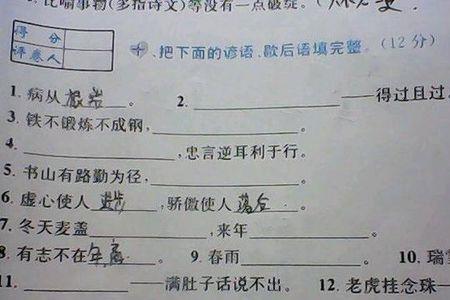 比喻事物(多指诗文)等没有一点破绽。(
得 分
评卷人
七、把下面的谚语、歇后语填完整。(12分)
1. 病从根治。 2. ——得过且过。
3. 铁不锻炼不成钢,。
4. ,忠言逆耳利于行。
5. 书山有路勤为径,。
6. 虚心使人进步,骄傲使人落后。
7. 冬天麦盖,来年。
8. 有志不在年高。 9. 春雨。 10. 瑞雪
11. ——满肚子话说不出。 12. 老虎挂念珠—